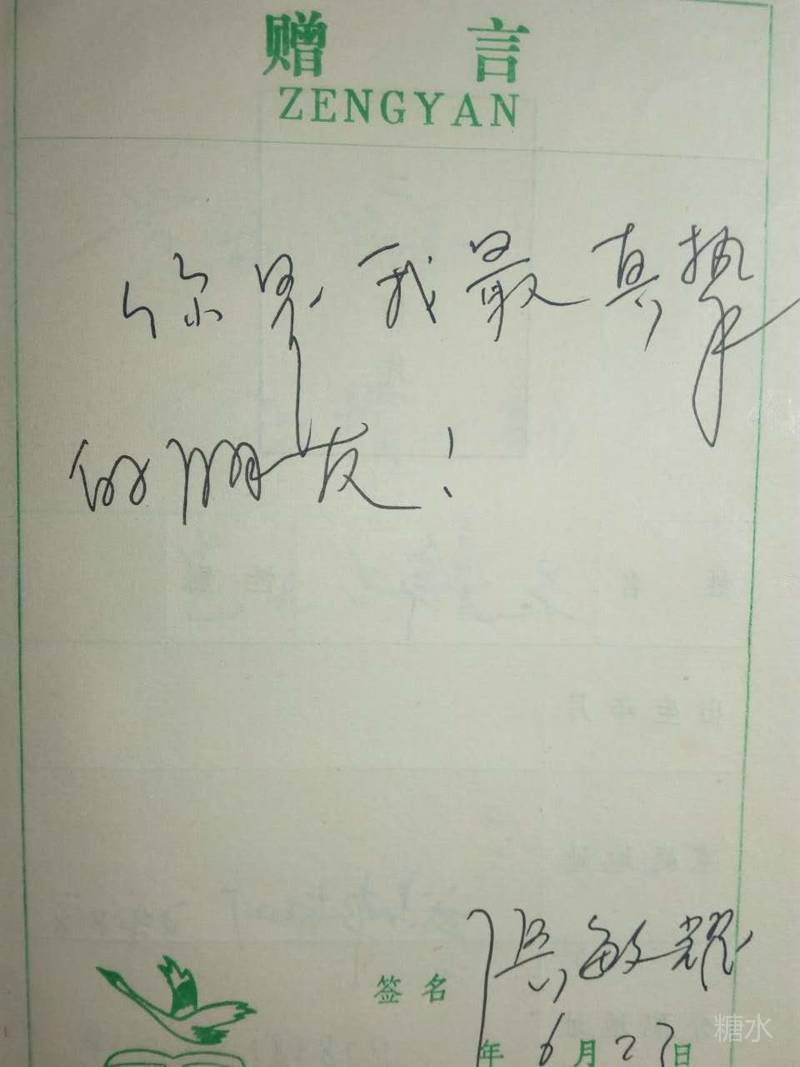 赠言
ZENGYAN
你是我最真挚
的朋友!
签名 敏耀
年6月27日
糖水